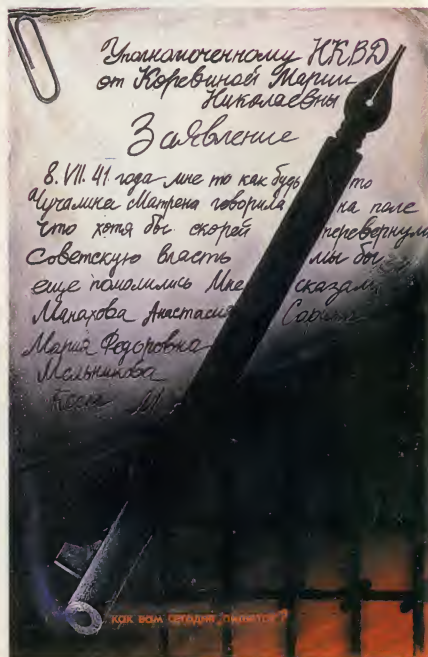 Уполномоченному НКВД
от Коревиной Марии
Николаевны
Заявление
8. VII. 41 года мне то как будь то
Чучамина Матрена говорила на поле
что хотя бы скорей перевернули
Советскую власть мы бы
еще помолились Мне сказали
Манахова Анастасия
Мария Федоровна
Мельникова
как вам сегодня пишется?